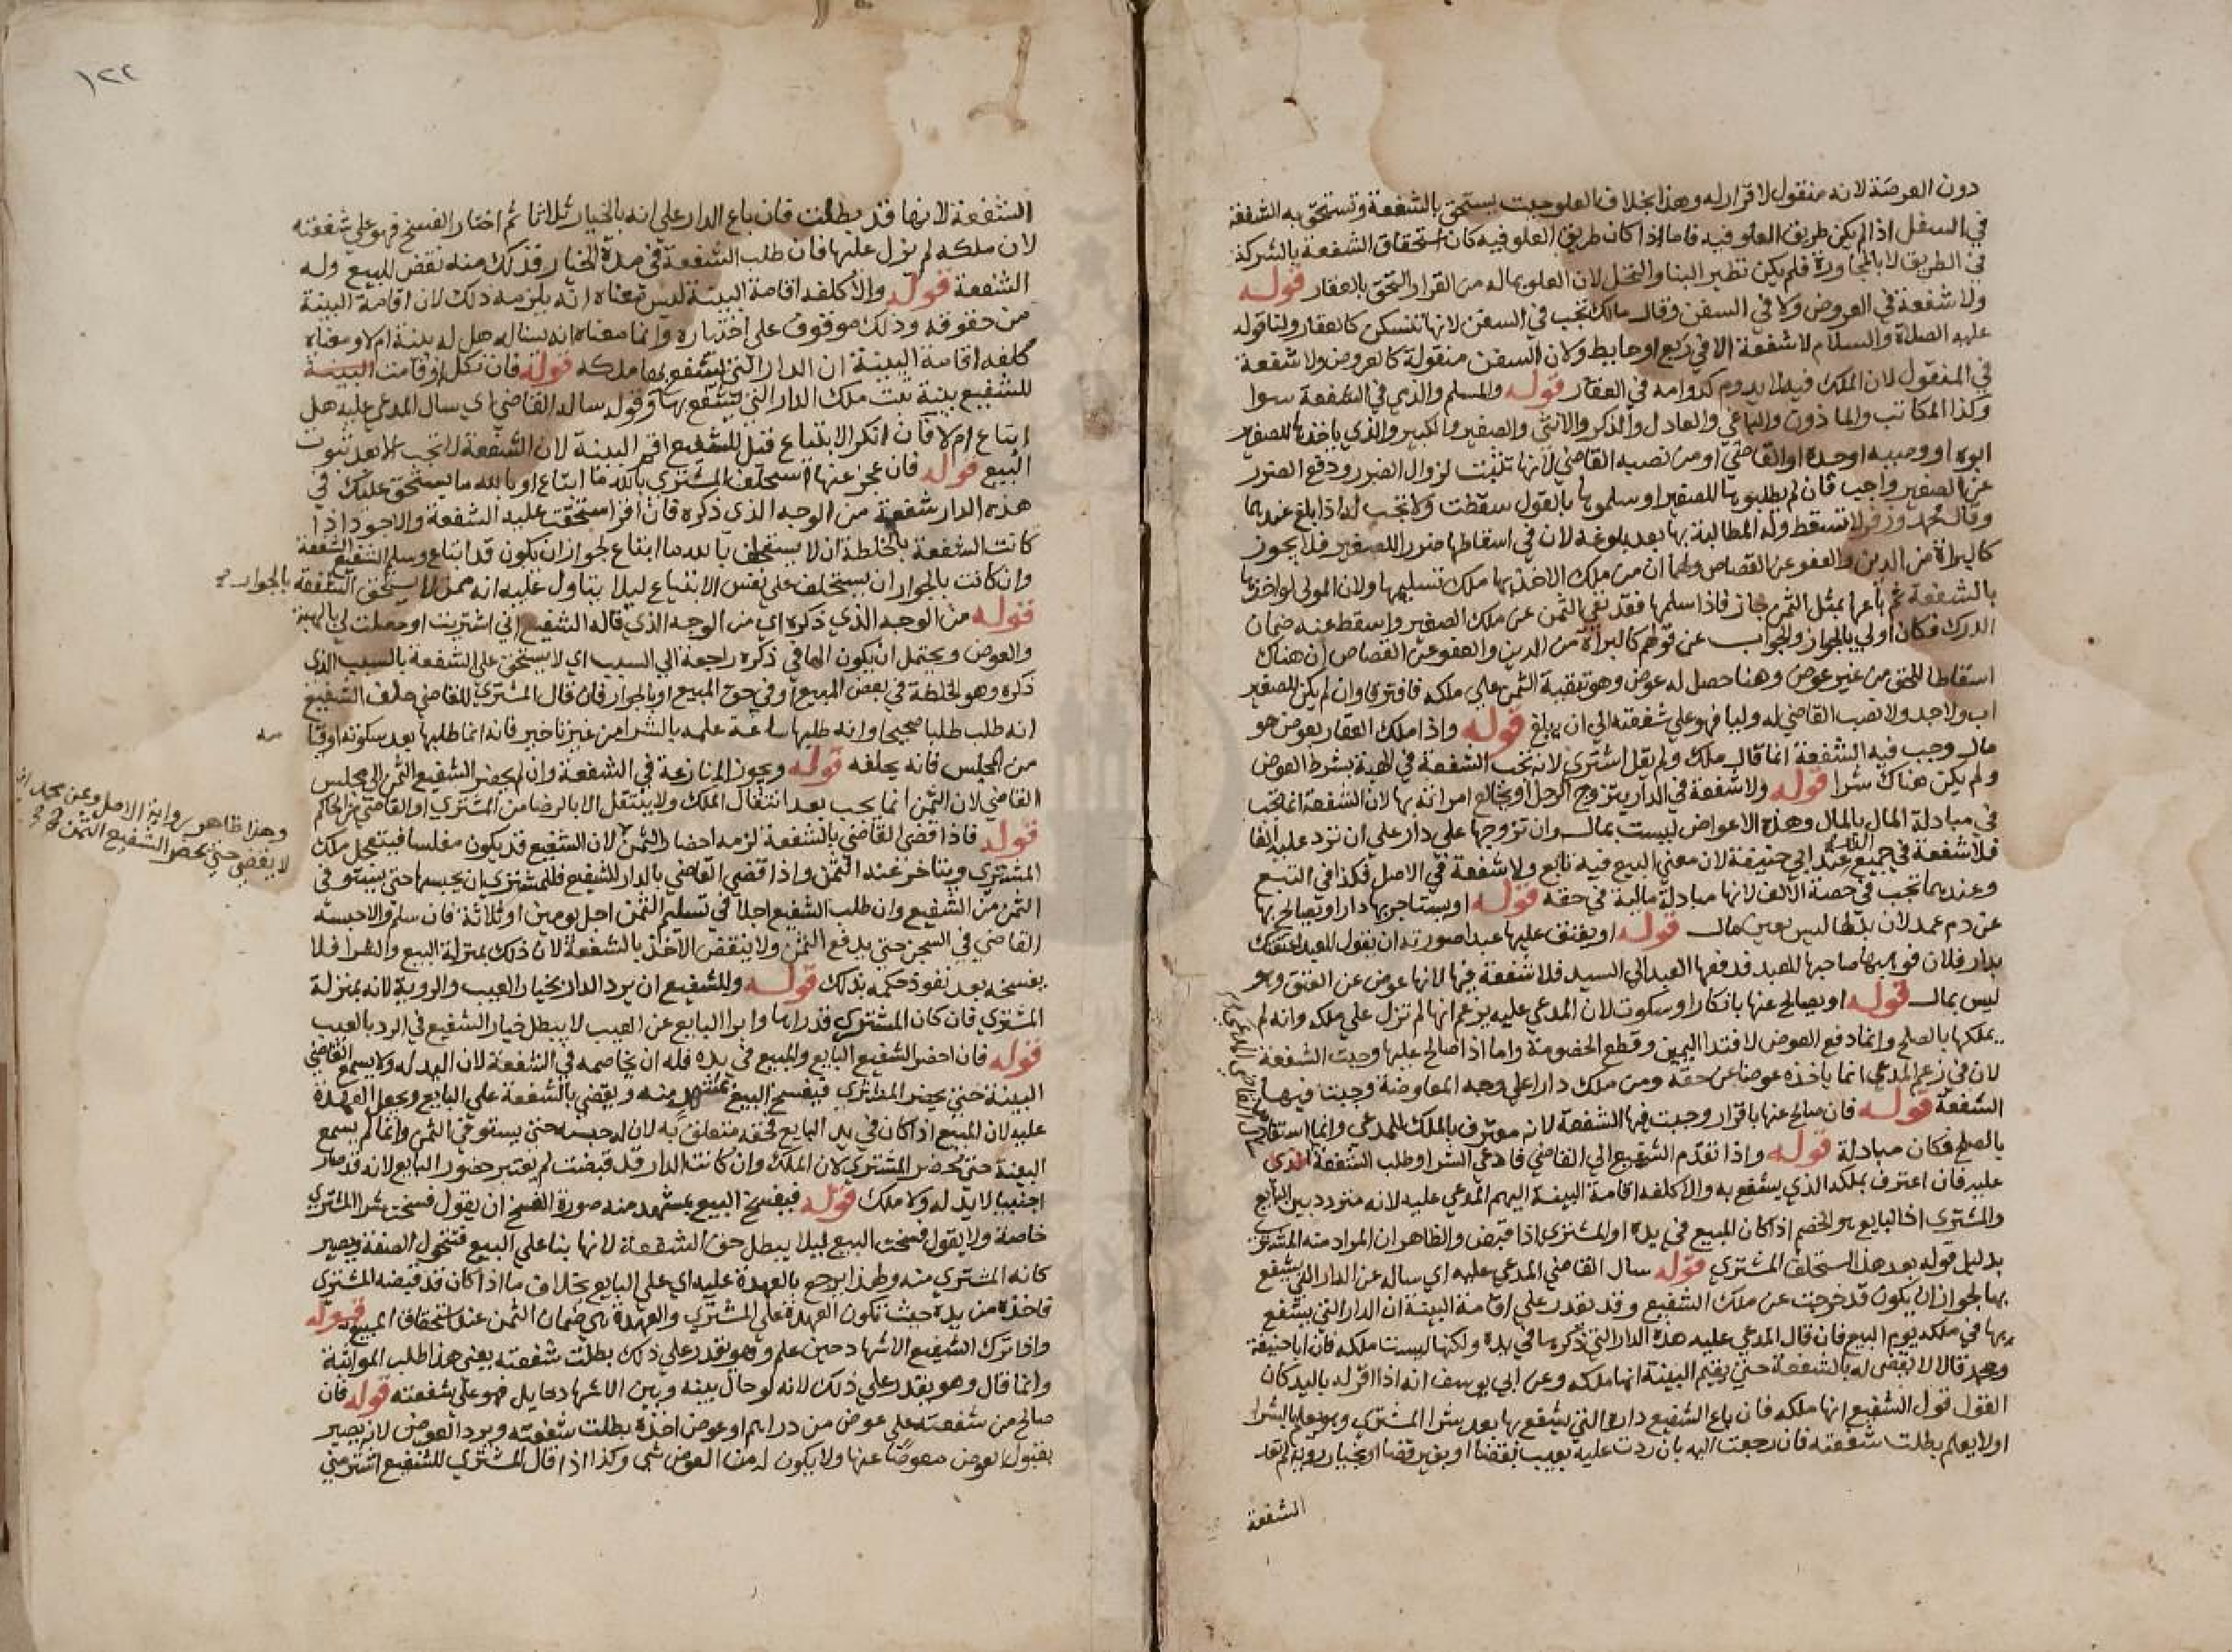 دون العرصة لانه منقول لا قرار له وهذا بخلاف العلو حيث يستحق بالشفعة وتستحق به الشفعة
في السفل اذا لم يكن طريق العلو فيه فاما اذا كان طريق العلو فيه كان استحقاق الشفعة بالشركة
في الطريق لا بالمجاورة فلم يكن نظير البنا والنخل لان العلو بماله من القرار التحق بالعقار قوله
ولا شفعة في العروض ولا في السفن وقال مالك تجب في السفن لانها تسكن كالعقار ولنا قوله
عليه الصلاة والسلام لا شفعة الا في ربع او حايط ولان السفن منقولة كالعروض ولا شفعة
في المنقول لان الملك فيه لا يدوم كدوامه في العقار قوله والمسلم والذمي في الشفعة سوا
وكذا المكاتب والماذون والباغي والعادل والذكر والانثى والصغير والكبير والذي ياخذها للصغير
ابوه او وصيه او جده او القاضي او من نصبه القاضي لانها تثبت لزوال الضرر ودفع الضرر
عن الصغير واجب فان لم يطلبوها للصغير او سلموها بالقول سقطت ولا تجب له اذا بلغ عندهما
وقال محمد وزفر لا تسقط وله المطالبة بها بعد بلوغه لان في اسقاطها ضررا للصغير فلا يجوز
كالبراة من الدين والعفو عن القصاص ولهما ان من ملك الاخذ بها ملك تسليمها ولان المولى لو اخذها
بالشفعة ثم باعها بمثل الثمن جاز فاذا سلمها فقد بقي الثمن عن ملك الصغير واسقط عنه ضمان
الدرك فكان اولى بالجواز والجواب عن قولهم كالبراة من الدين والعفو عن القصاص ان هناك
استقاطا للحق من غير عوض وهنا حصل له عوض وهو تبقية الثمن على ملكه فافترقا وان لم يكن للصغير
اب ولا جد ولا نصب القاضي له وليا فهو على شفعته الى ان يبلغ قوله واذا ملك العقار بعوض هو
مال وجب فيه الشفعة انما قال ملك ولم يقل اشترى لانه تجب الشفعة في الهبة بشرط العوض
ولم يكن هناك شرا قوله ولا شفعة في الدار يتزوج الرجل او يخالع امراته بها لان الشفعة انما تجب
في مبادلة المال بالمال وهذه الاعواض ليست بمال وان تزوجها على دار على ان ترد عليه الفا
فلا شفعة في جميع الدار عند ابي حنيفة لان معنى البيع فيه تابع ولا شفعة في الاصل فكذا في التبع
وعندهما تجب في حصة الالف لانها مبادلة مالية في حقه قوله او يستاجر بها دارا او يصالح بها
عن دم عمد لان بدلها ليس بعين مال قوله او يعتق عليها عبدا صورته ان يقول للعبد اعتقتك
بدار فلان فوهبها صاحبها للعبد فدفعها العبد الى السيد فلا شفعة فيها لانها عوض عن العتق وهو
ليس بمال قوله او يصالح عنها بانكار او سكوت لان المدعى عليه يزعم انها لم تزل على ملكه وانه لم
يملكها بالصلح وانما دفع العوض لافتدا اليمين وقطع الخصومة واما اذا صالح عليها وجبت الشفعة
لان في زعم المدعي انما ياخذه عوضا عن حقه ومن ملك دارا على وجه المعاوضة وجبت فيها
الشفعة قوله فان صالح عنها باقرار وجبت فيها الشفعة لانه معترف بالملك للمدعي وانما استفاده
بالصلح فكان مبادلة قوله واذا تقدم الشفيع الى القاضي فادعى الشرا وطلب الشفعة
عليه فان اعترف بملكه الذي يشفع به والا كلفه اقامة البينة ابهم المدعى عليه لانه متردد بين البايع
والمشتري اذ البايع هو الخصم اذا كان المبيع في يده او المشتري اذا قبض والظاهر ان المراد منه المشتري
بدليل قوله بعد هذا استحلف المشتري قوله سال القاضي المدعى عليه اي ساله عن الدار التي يشفع
بها لجواز ان يكون قد خرجت عن ملك الشفيع وقد يقدر على اقامة البينة ان الدار التي يشفع
بها في ملكه يوم البيع فان قال المدعى عليه هذه الدار التي ذكرها في يده ولكنها ليست ملكه فان ابا حنيفة
ومحمد قالا لا يقضى له بالشفعة حتى يقيم البينة انها ملكه وعن ابي يوسف انه اذا اقر له باليد كان
القول قول الشفيع انها ملكه فان باع الشفيع داره التي يشفع بها بعد شرا المشتري وهو يعلم بالشرا
اولا يعلم بطلت شفعته فان رجعت اليه بان ردت عليه بعيب بقضا او بغير قضا او بخيار روية لم تعد
الشفعة
١٢٢
الشفعة لانها قد بطلت فان باع الدار على انه بالخيار ثلاثا ثم اختار الفسخ فهو على شفعته
لان ملكه لم يزل عليها فان طلب الشفعة في مدة الخيار فذلك منه نقض للبيع وله
الشفعة قوله والا كلفه اقامة البينة ليس معناه انه يلزمه ذلك لان اقامة البينة
من حقوقه وذلك موقوف على اختياره وانما معناه انه يساله هل له بينة ام لا ومعناه
كلفه اقامة البينة ان الدار التي يشفع بها ملكه قوله فان نكل او قامت البينة
للشفيع بينة ثبت ملك الدار التي يشفع بها وقوله ساله القاضي اي سال المدعى عليه هل
ابتاع ام لا فان انكر الابتياع قيل للشفيع اقم البينة لان الشفعة لا تجب الا بعد ثبوت
البيع قوله فان عجز عنها استحلف المشتري بالله ما ابتاع او بالله ما يستحق عليك في
هذه الدار شفعة من الوجه الذي ذكره فان اقر استحقت عليه الشفعة والاجود اذا
كانت الشفعة بالخلطة ان لا يستحلف بالله ما ابتاع لجواز ان يكون قد ابتاع وسلم الشفيع الشفعة
وان كانت بالجوار ان يستحلف على نفس الابتياع ليلا يتاول عليه انه ممن لا يستحق الشفعة بالجوار
قوله من الوجه الذي ذكره اي من الوجه الذي قاله الشفيع اني اشتريت او حصلت لي بالهبة
والعوض ويحتمل ان يكون الها في ذكره راجعة الى السبب اي لا يستحق على الشفعة بالسبب الذي
ذكره وهو الخلطة في بعض المبيع او في حق المبيع او بالجوار فان قال المشتري للقاضي حلف الشفيع
انه طلب طلبا صحيحا وانه طلبها ساعة علمه بالشرا من غير تاخير فانه انما طلبها بعد سكوته او قيا
مه
من المجلس فانه يحلفه قوله ويجوز المنازعة في الشفعة وان لم يحضر الشفيع الثمن الى مجلس
القاضي لان الثمن انما يجب بعد انتقال الملك ولا ينتقل الا بالرضا من المشتري او القاضي من الحاكم
وهذا ظاهر رواية الاصل وعن محمد انه
لا يقضي حتى يحضر الشفيع الثمن
قوله فاذا قضى القاضي بالشفعة لزمه احضار الثمن لان الشفيع قد يكون مفلسا فيتعجل ملك
المشتري ويتاخر عنه الثمن واذا قضى القاضي بالدار للشفيع فللمشتري ان يحبسها حتى يستوفي
الثمن من الشفيع وان طلب الشفيع اجلا في تسليم الثمن اجل يومين او ثلاثة فان سلم والا حبسه
القاضي في السجن حتى يدفع الثمن ولا ينقض الاخذ بالشفعة لان ذلك بمنزلة البيع والشرا فلا
يفسخه بعد نفوذ حكمه بذلك قوله وللشفيع ان يرد الدار بخيار العيب والروية لانه بمنزلة
المشتري فان كان المشتري قد راها وابرا البايع عن العيب لا يبطل خيار الشفيع في الرد بالعيب
قوله فان احضر الشفيع البايع والمبيع في يده فله ان يخاصمه في الشفعة لان اليد له ولا يسمع القاضي
البينة حتى يحضر المشتري فيفسخ البيع بمشهد منه ويقضي بالشفعة على البايع ويجعل العهدة
عليه لان المبيع اذا كان في يد البايع فحقه متعلق به لان له حبسه حتى يستوفي الثمن وانما لم يسمع
البينة حتى يحضر المشتري لان الملك وان كانت الدار قد قبضت لم يعتبر حضور البايع لانه قد صار
اجنبيا لا يد له ولا ملك قوله فيفسخ البيع بمشهد منه صورة الفسخ ان يقول فسخت شرا المشتري
خاصة ولا يقول فسخت البيع ليلا يبطل حق الشفعة لانها بنا على البيع فتتحول الصفقة ويصير
كانه المشتري منه ولهذا يرجع بالعهدة عليه اي على البايع بخلاف ما اذا كان قد قبضه المشتري
فاخذه من يده حيث تكون العهدة على المشتري والعهدة هي ضمان الثمن عند استحقاق المبيع قوله
واذا ترك الشفيع الاشهاد حين علم وهو يقدر على ذلك بطلت شفعته يعني هذا طلب المواثبة
وانما قال وهو يقدر على ذلك لانه لو حال بينه وبين الاشهاد حايل فهو على شفعته قوله فان
صالح من شفعته على عوض من دراهم او عوض اخذه بطلت شفعته ويرد العوض لانه يصير
بقبول العوض معوضا عنها ولا يكون له من العوض شي وكذا اذا قال المشتري للشفيع اشترمني